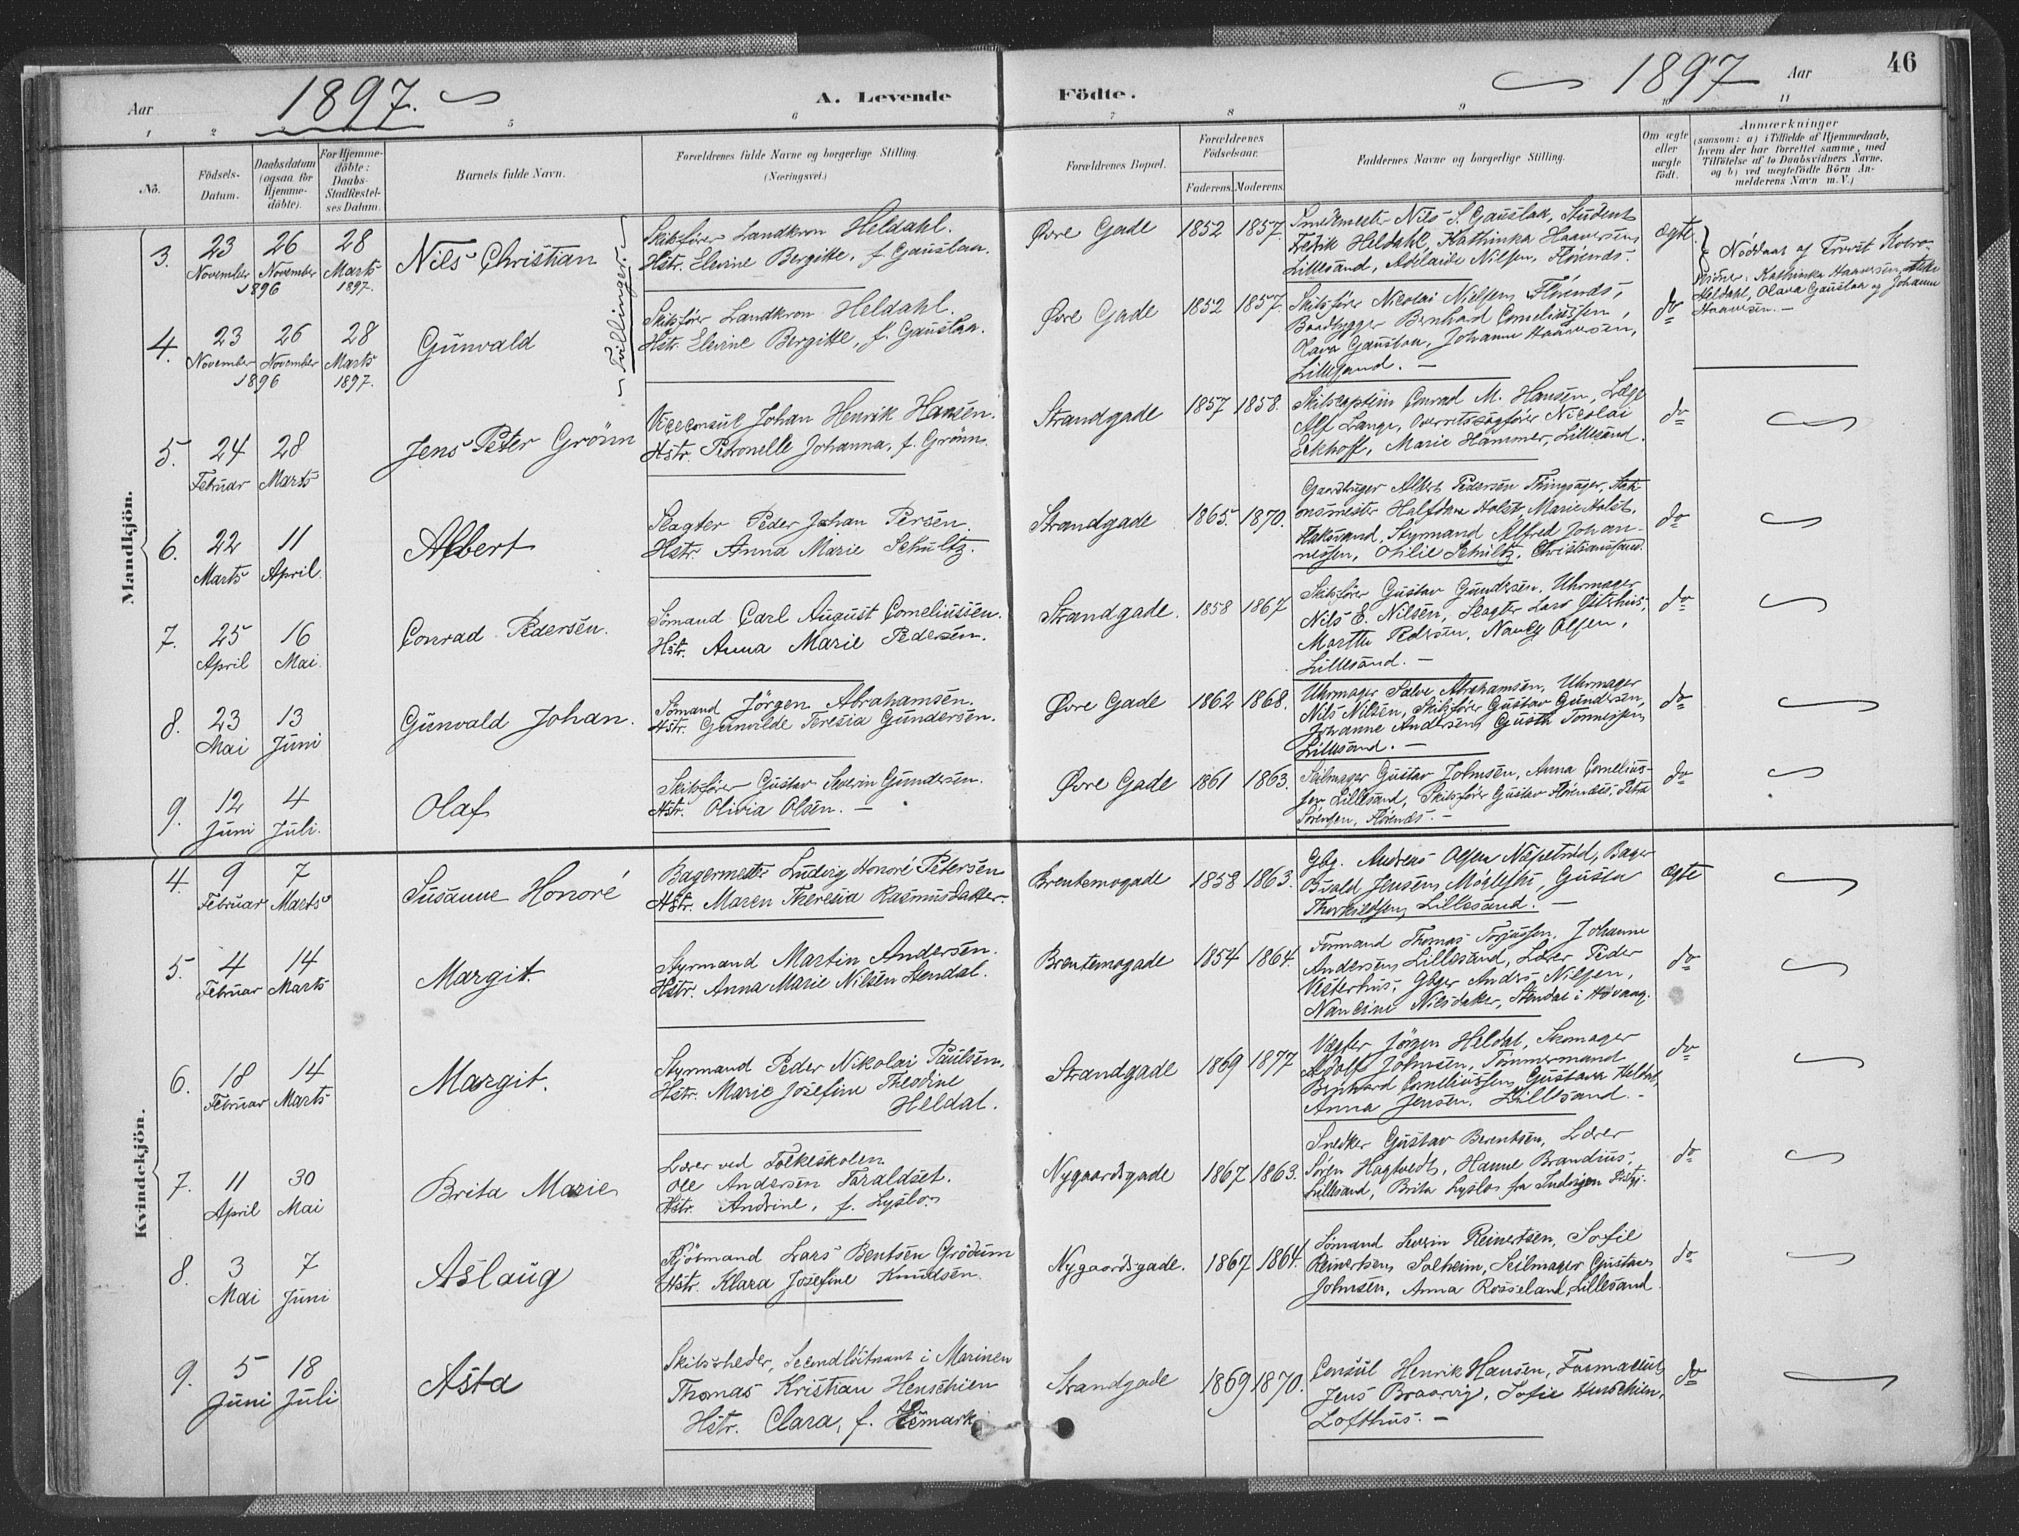 Aar 1897. A. Levende Födte. 1897 Aar 46
1 2 5 6 7 8 9 10 11
Nò.
Födsels-Datum.
Daabsdatum (ogsaa for Hjemmedöbte).
For Hjemmedöbte: Daabs-Stadfæstelses Datum.
Barnets fulde Navn.
Forældrenes fulde Navne og borgerlige Stilling.
(Næringsvei.)
Forældrenes Bopæl.
Forældrenes Födselsaar.
Faderens. Moderens.
Faddernes Navne og borgerlige Stilling.
Om ægte eller uægte födt.
Anmærkninger
(saasom: a) i Tilfælde af Hjemmedaab,
hvem der har forrettet samme, med
Tilföielse af to Daabsvidners Navne,
og b) ved uægtefödte Börn Anmelderens Navn m. V.)
Mandkjön.
3. 23 November 26 November 1896 28 Marts 1897.
Nils Christian
Tvillinger.
Skibsfører Landkron Heldahl.
Hstr. Elevine Bergitte, f. Gauslaa.
Øvre Gade 1852 1857.
Smedmester Nils S. Gauslaa, Student
Fredrik Heldahl, Kathinka Haaversen,
Lillesand, Adelaide Nilsen, Florends.
ægte.
Nøddaab af Provst
Kathinka Haaversen,
Heldahl, Olava Gauslaa og Johanne
Haaversen. —
4. 23 November 26 November 1896 28 Marts 1897.
Gunvald
Skibsfører Landkron Heldahl.
Hstr. Elevine Bergitte, f. Gauslaa.
Øvre Gade 1852 1857.
Skibsfører Nicolai Nielsen, Florends,
Baadbygger Bernhard Corneliussen,
Olava Gauslaa, Johanne Haaversen,
Lillesand. —
do
5. 24 Februar 28 Marts
Jens Peter Grönn
Viceconsul Johan Henrik Hansen.
Hstr. Petronelle Johanna, f. Grönn.
Strandgade 1857 1858.
Skibscaptein Conrad M. Hansen, Læge
Alf Lange, Overretssagfører Nicolai
Eckhoff, Marie Hammer, Lillesand.
do
6. 22 Marts 11 April.
Albert
Slagter Peder Johan Persen.
Hstr. Anna Marie Schultz.
Strandgade 1865. 1870.
Gaardbruger Albert Pedersen Thingsager,
Halfdan Holst, Marie Holst,
Styrmand Alfred Johannessen,
Othilie Schultz, Christianssand.
do
7. 25 April 16 Mai
Conrad Pedersen.
Sömand Carl August Corneliussen.
Hstr. Anna Marie Pedersen.
Strandgade. 1858 1867
Skibsfører Gustav Gundersen, Uhrmager
Nils E. Nilsen, Slagter Lars
Marthe Pedersen, Nancy Olsen,
Lillesand. —
do
8. 23 Mai 13 Juni
Gunvald Johan.
Sömand Jörgen Abrahamsen.
Hstr. Gunvalde Teresia Gundersen.
Øvre Gade 1862 1868.
Uhrmager Salve Abrahamsen, Uhrmager
Nils Nilsen, Skibsfører Gustav Gundersen,
Johanne Andersen, Gusta Tønnessen,
Lillesand. —
do
9. 12 Juni 4 Juli.
Olaf
Skibsfører Gustav Severin Gundersen.
Hstr. Olivia Olsen. —
Øvre Gade 1861 1863.
Seilmager Gustav Johnsen, Anna Corneliussen
Lillesand, Skibsfører Gustav
Sörensen, —
do
Kvindekjön.
4. 9 Februar 7 Marts
Susanne Honoré
Bagermester Ludvig Honoré Petersen
Hstr. Maren Theresia Rasmusdatter.
Brentemogade 1858 1863.
Gbg. Andreas Olsen Næpetvéd, Bager
Jensen, Gusta
Thorkildsen, Lillesand. —
ægte
5. 4 Februar 14 Marts
Margit.
Styrmand Martin Andersen.
Hstr. Anna Marie Nilsen Stendal.
Brentemogade 1854 1864.
Formand Thomas Torjussen, Johanne
Andersen, Lillesand, Lærer Peder
Vesterhus, Gbger Anders Nilsen,
Nancine Nilsdatter, Stendal i Høvaag.
do
6. 18 Februar 14 Marts
Margit.
Styrmand Peder Nikolai Paulsen.
Hstr. Marie Josefine Theodine
Heldal.
Strandgade 1869 1877
Vægter Jörgen Heldal, Skomager
Adolf Johnsen, Tömmermand
Bernhard Corneliussen, Gustava Heldal,
Anna Jensen. Lillesand. —
do
7. 11 April 30 Mai
Brita Marie
Lærer ved Folkeskolen
Ole Andersen Taraldset.
Hstr. Andrine, f. Lyslo.
Nygaardsgade 1867 1863.
Snedker Gustav Berentsen, Lærer
Søren Hagtvedt, Hanne Brandius,
Lillesand, Brita Lyslo fra
do
8. 3 Mai 7 Juni
Aslaug
Kjöbmand Lars Bentsen Grödum
Hstr. Klara Josefine Knudsen.
Nygaardsgade. 1867 1864.
Sömand Severin Reinertsen, Sofie
Reinertsen, Solheim, Seilmager Gustav
Johnsen, Anna Rosseland, Lillesand.
do
9. 5 Juni 18 Juli
Asta
Skibsrheder, Secondlöitnant i Marinen
Thomas Kristian Henschien
Hstr. Clara, f. Hemark.
Strandgade 1869 1870.
Consul Henrik Hansen, Farmaceut
Jens Braarvig, Sofie Henschien,
Lofthus. —
do